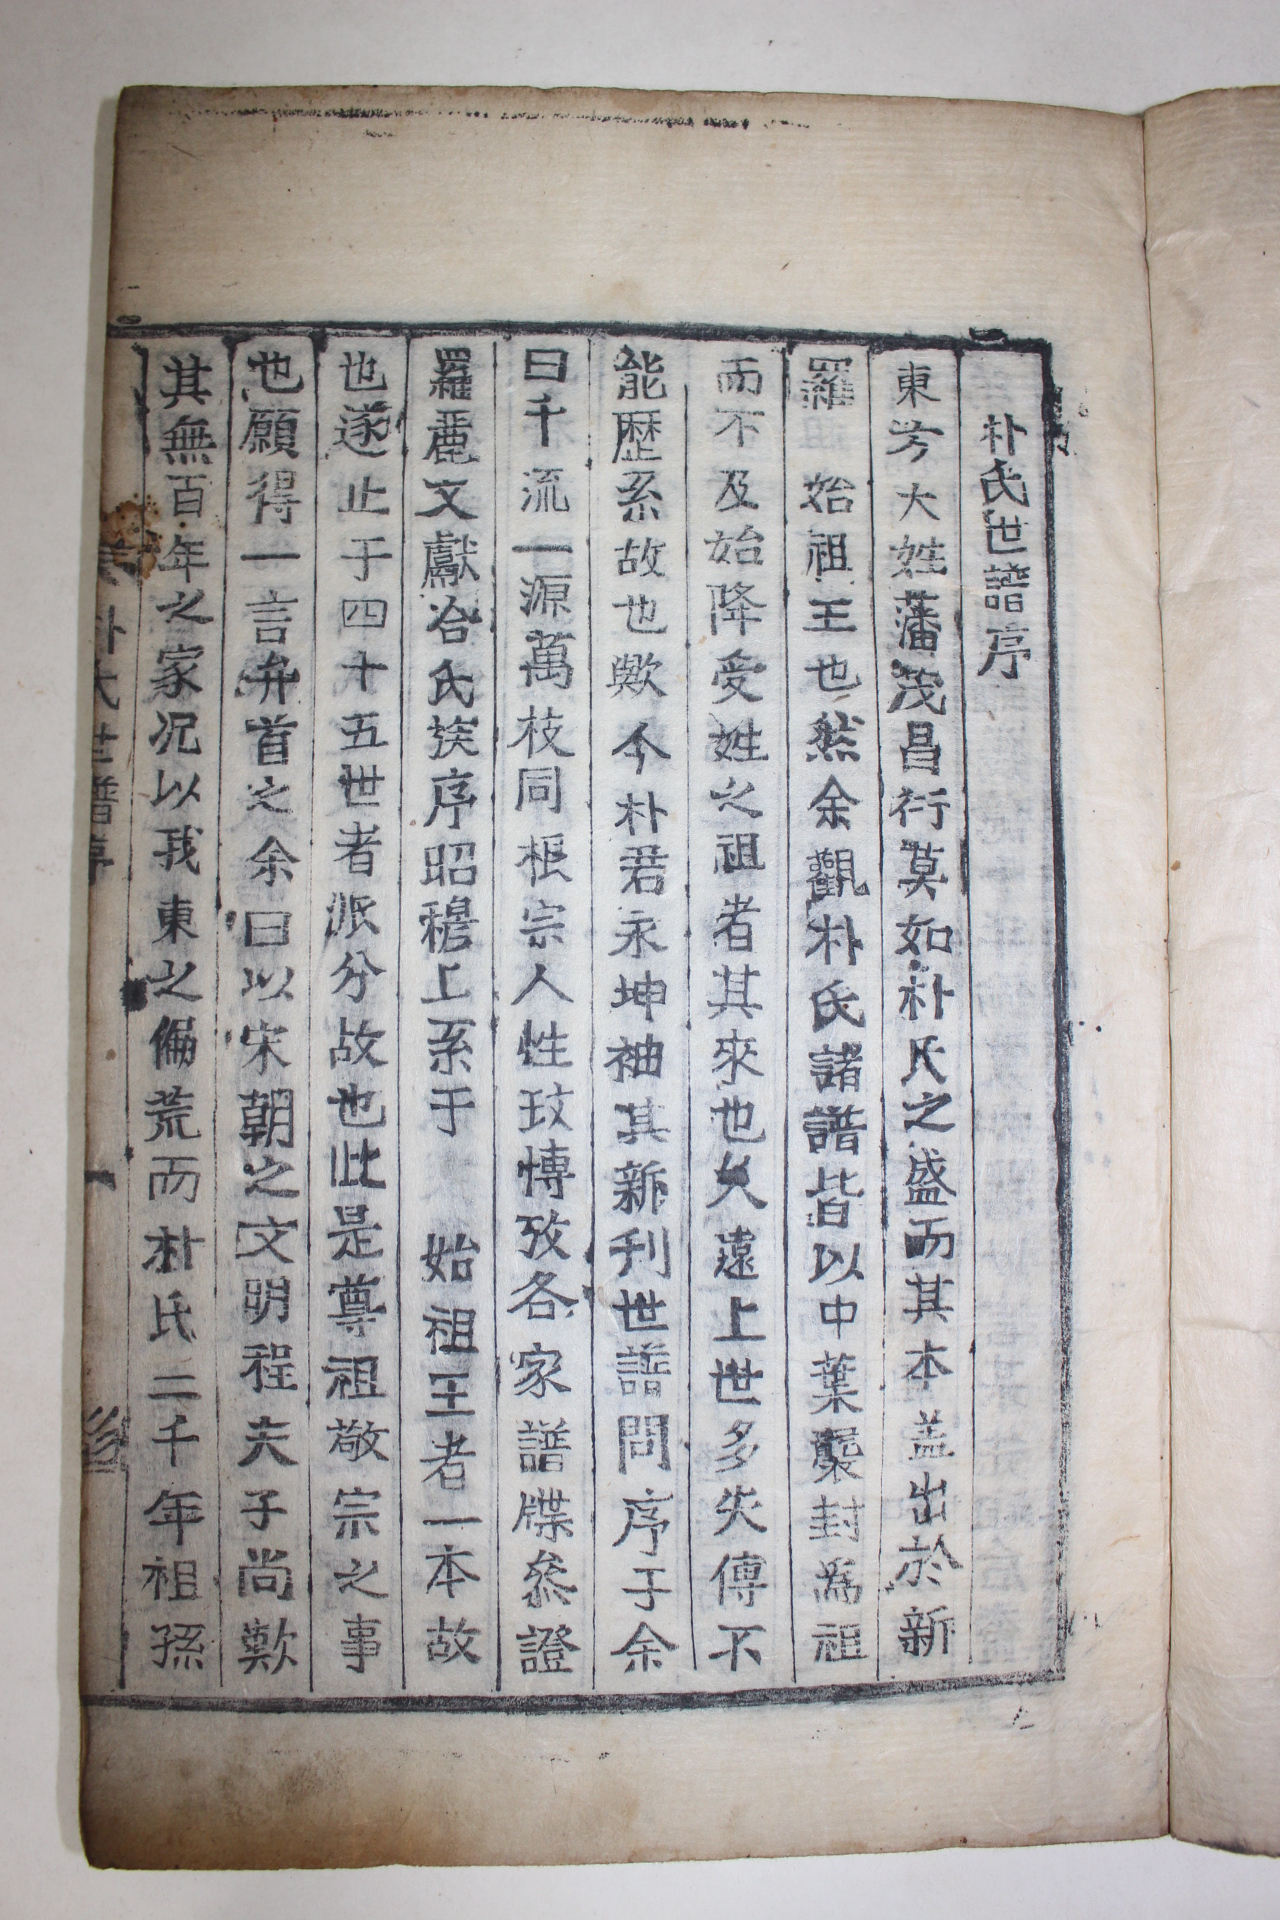 朴氏世譜序
東方大姓藩茂昌衍莫如朴氏之盛而其本盖出於新
羅 始祖王也然余觀朴氏諸譜皆以中葉襲封爲祖
而不及始降受姓之祖者其來也久遠上世多失傳不
能歷系故也歟今朴君永坤袖其新刊世譜問序于余
曰千流一源萬枝同根宗人性玟愽攷各家譜牒叅證
羅麗文獻洽氏族序昭穆上系于 始祖王者一本故
也遂止于四十五世者派分故也此是尊祖敬宗之事
也願得一言弁首之余曰以宋朝之文明程夫子尚歎
其無百年之家况以我東之偏荒而朴氏二千年祖孫
朴氏世譜序